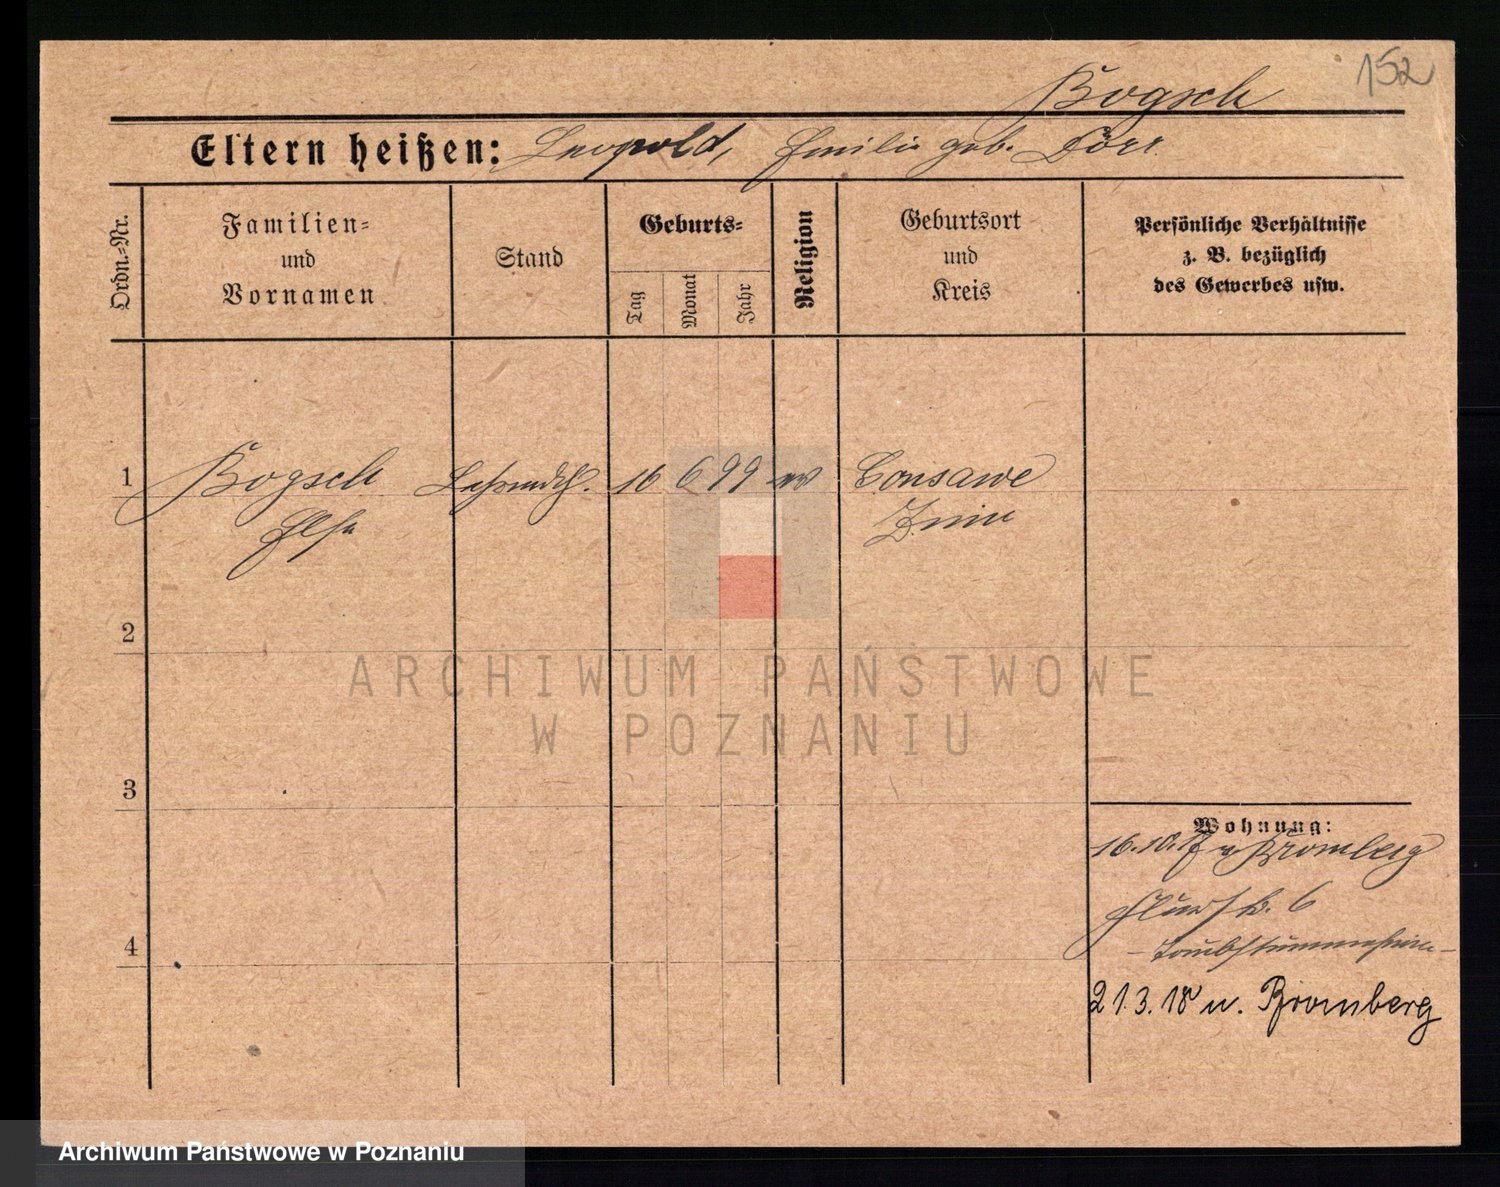 152
Bogsch
Eltern heißen: Leopold, Emilie geb. Dörr
Ordn.-Nr.
Familien-
und
Vornamen
Stand
Geburts-
Tag
Monat
Jahr
Religion
Geburtsort
und
Kreis
Persönliche Verhältnisse
z. B. bezüglich
des Gewerbes usw.
1 Bogsch 16 6 99 ev Gonsawe
Else Znin
2
3
4
Wohnung:
16.10.17 v Bromberg
6
21.3.18 n. Bromberg
ARCHIWUM PAŃSTWOWE
W POZNANIU
Archiwum Państwowe w Poznaniu